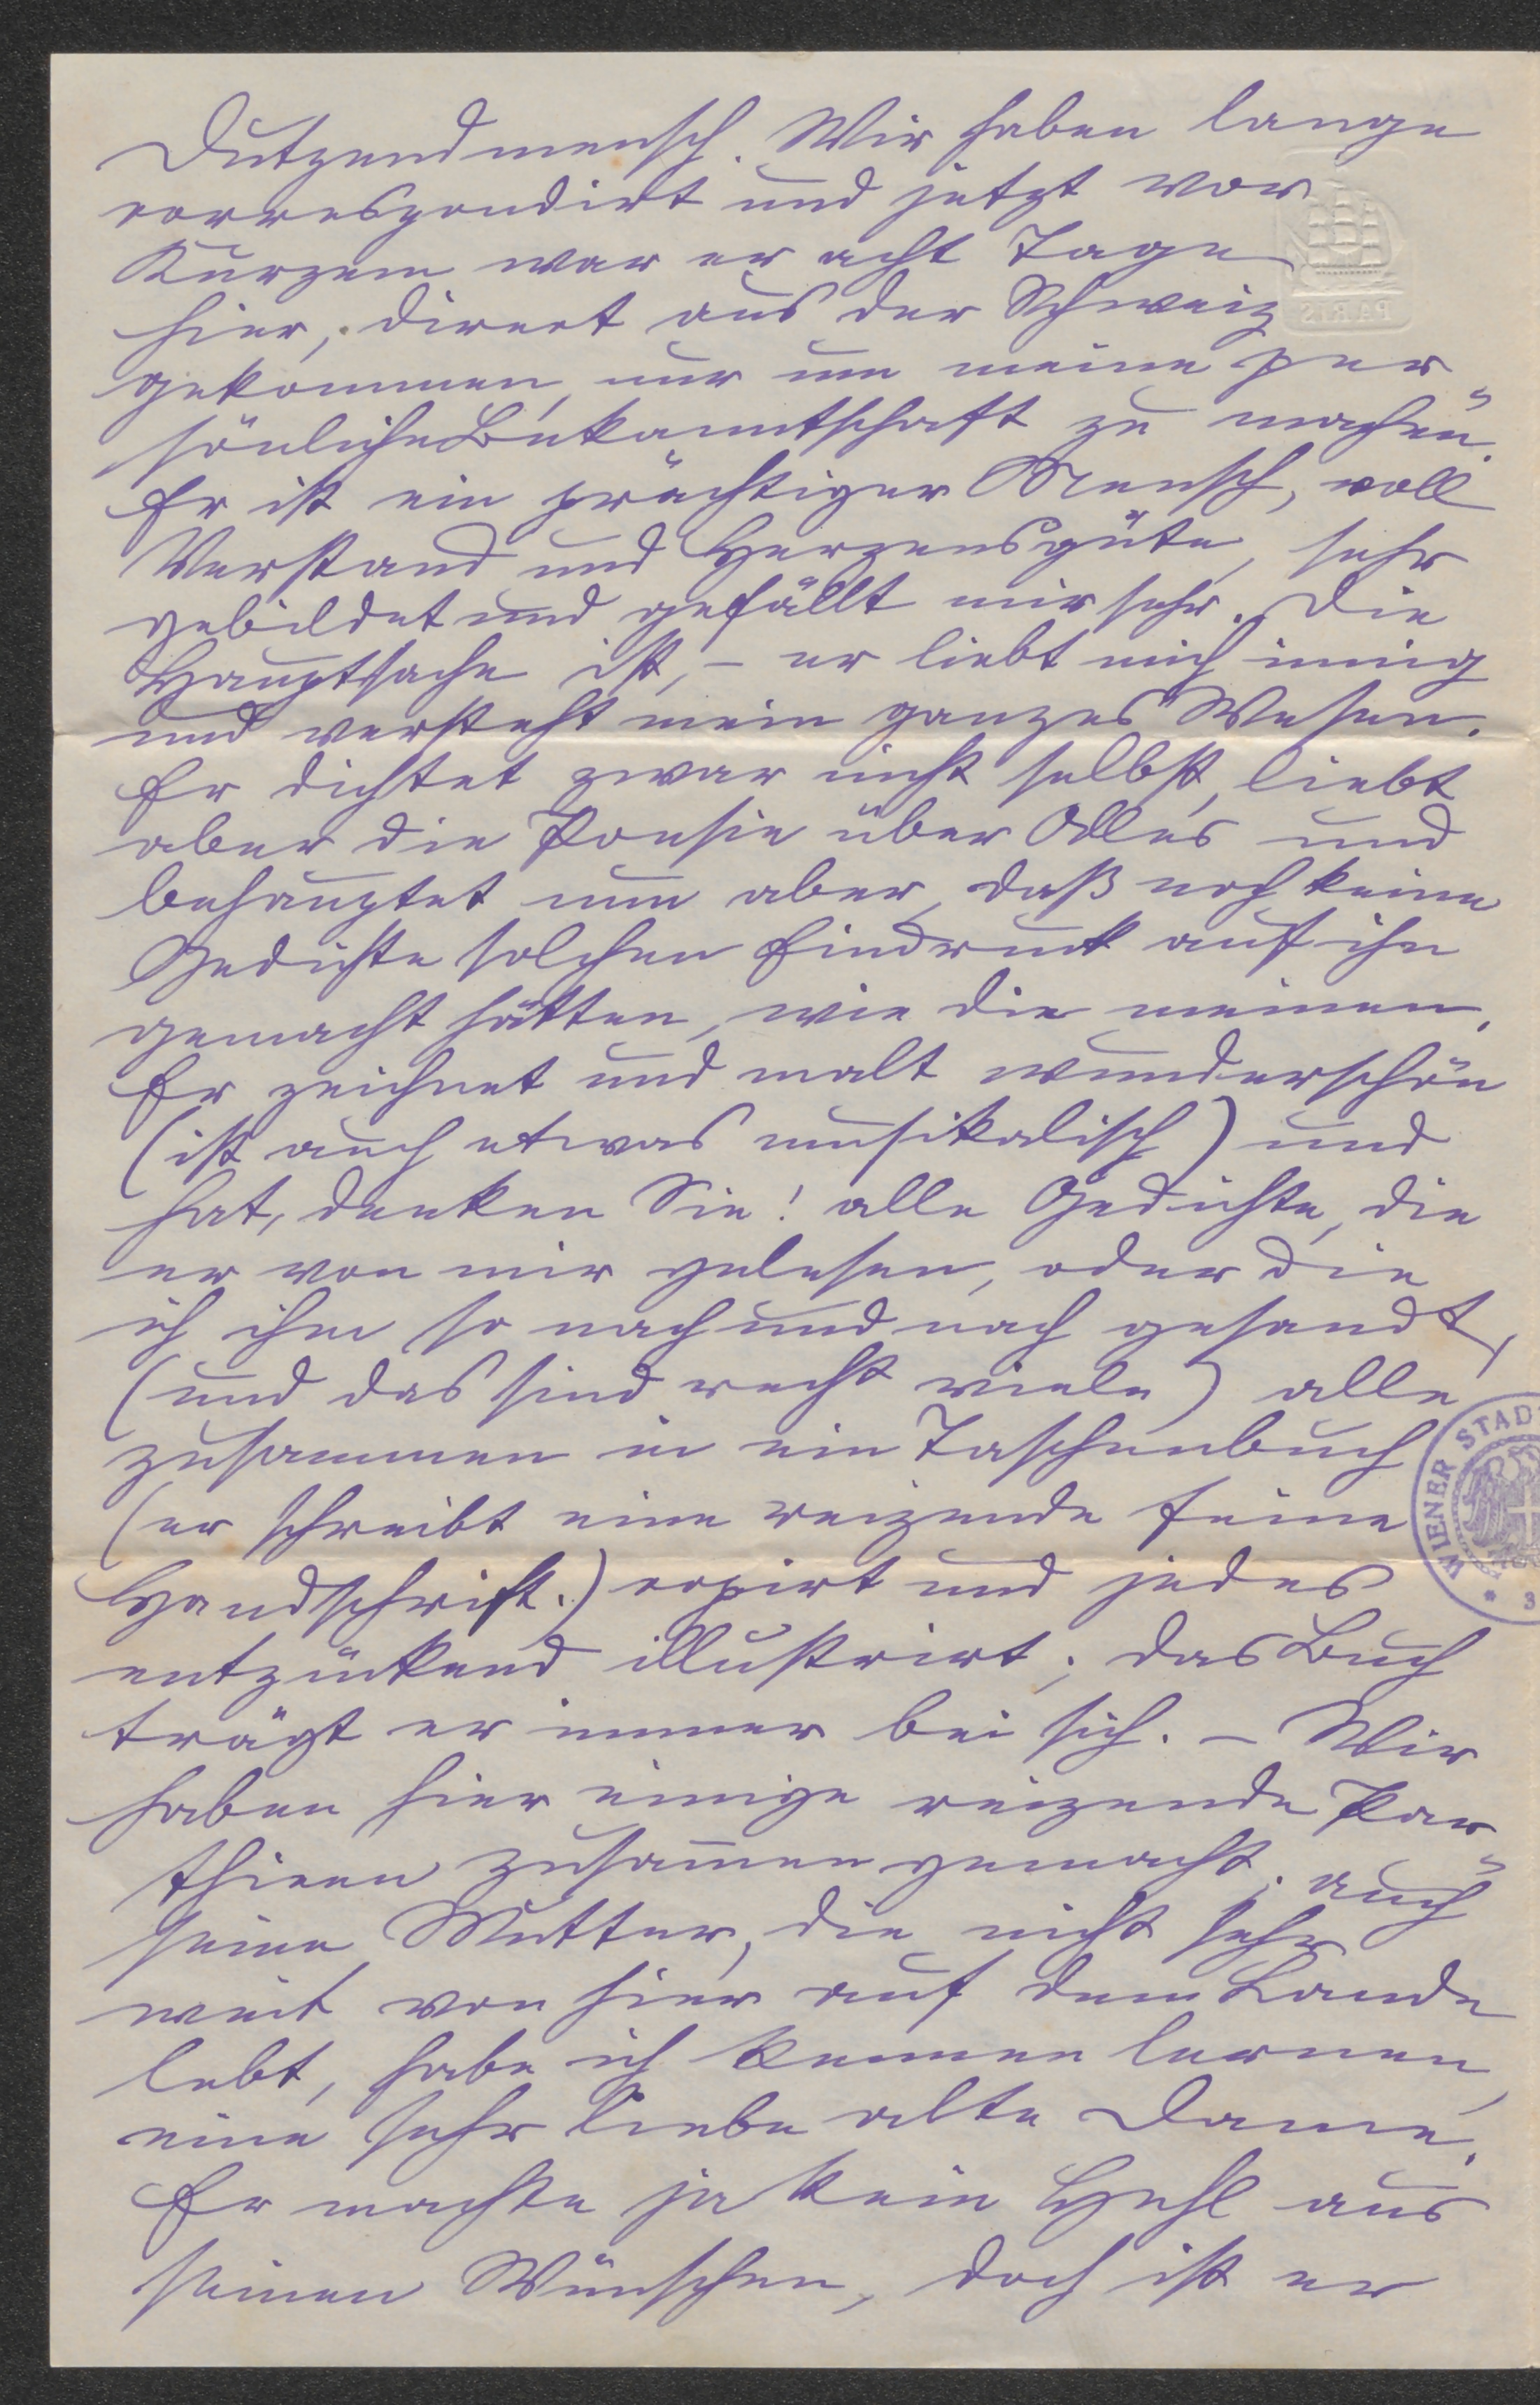 Dutzendmensch. Wir haben lange
correspondirt und jetzt vor
Kurzem war er acht Tage
hier, direct aus der Schweiz
gekommen, nur um meine per-
sönliche Bekanntschaft zu machen.
Er ist ein prächtiger Mensch, voll
Verstand und Herzensgüte, sehr
gebildet und gefällt mir sehr. Die
Hauptsache ist, – er liebt mich innig
und versteht mein ganzes Wesen.
Er dichtet zwar nicht selbst, liebt
aber die Poesie über Alles und
behauptet nun aber, daß noch keine
Gedichte solchen Eindruck auf ihn
gemacht hätten, wie die meinen.
Er zeichnet und malt wunderschön
(ist auch etwas musikalisch) und
hat, denken Sie! alle Gedichte, die
er von mir gelesen, oder die
ich ihm so nach und nach gesandt,
(und das sind recht viele) alle
zusammen in ein Taschenbuch
(er schreibt eine reizende feine
Handschrift.) copirt und jedes
entzückend illustrirt; das Buch
trägt er immer bei sich. – Wir
haben hier einige reizende Par-
thieen zusam̅en gemacht, auch
seine Mutter, die nicht sehr
weit von hier auf dem Lande
lebt, habe ich kennen lernen,
eine sehr liebe alte Dame.
Er machte ja kein Hehl aus
seinen Wünschen, doch ist er
PARIS
WIENER STAD
* 3